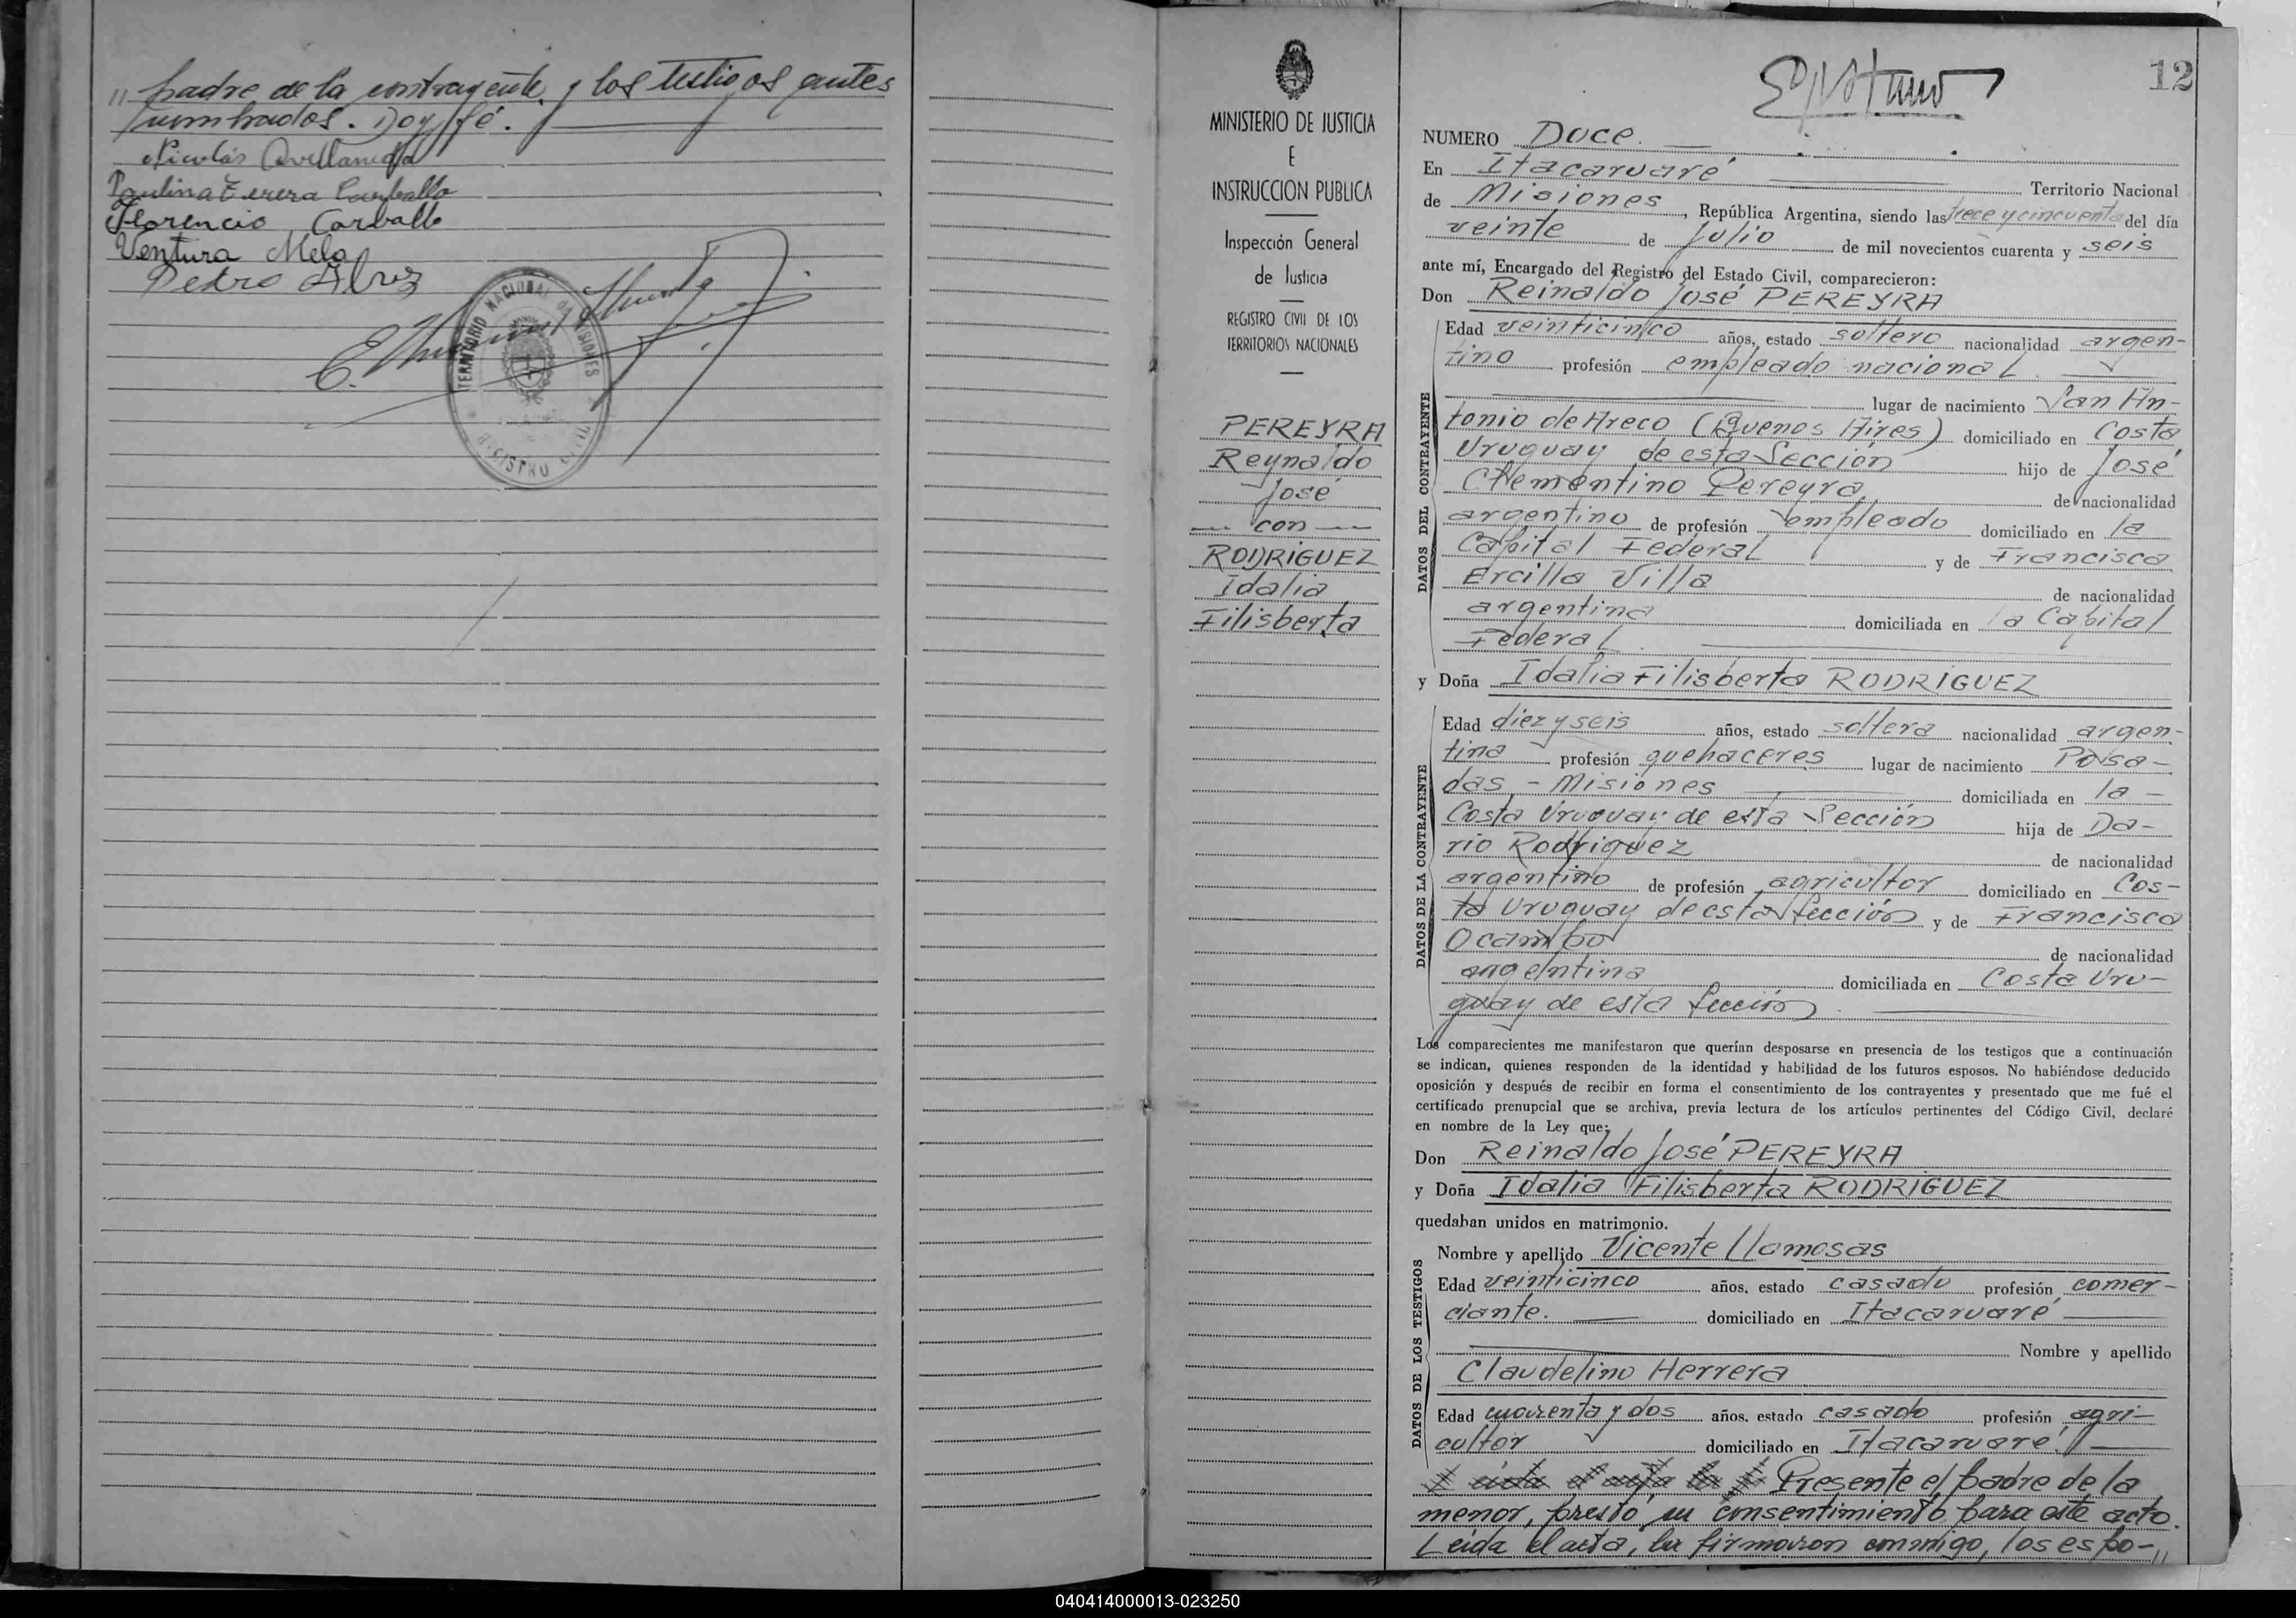 " padre de la contrayente y los testigos antes
nombrados. Doy fé.
Nicolás Avellaneda
Paulina Carballo
Florencio Carballo
Ventura Melo
Pedro Alvez
TERRITORIO NACIONAL DE MISIONES
REGISTRO CIVIL
MINISTERIO DE JUSTICIA
E
INSTRUCCION PUBLICA
Inspección General
de Justicia
REGISTRO CIVIL DE LOS
TERRITORIOS NACIONALES
PEREYRA
Reynaldo
José
— con —
RODRIGUEZ
Idalia
Filisberta
12
NUMERO Doce.
En Itacaruaré Territorio Nacional
de Misiones, República Argentina, siendo las trece y cincuenta del día
veinte de julio de mil novecientos cuarenta y seis
ante mí, Encargado del Registro del Estado Civil, comparecieron:
Don Reinaldo José PEREYRA
DATOS DEL CONTRAYENTE
Edad veinticinco años, estado soltero nacionalidad argen-
tino profesión empleado nacional.
lugar de nacimiento San An-
tonio de Areco (Buenos Aires) domiciliado en Costa
Uruguay de esta Sección hijo de José
Clementino Pereyra de nacionalidad
argentino de profesión empleado domiciliado en la
Capital Federal y de Francisca
Ercilla Villa de nacionalidad
argentina domiciliada en la Capital
Federal.
y Doña Idalia Filisberta RODRIGUEZ
DATOS DE LA CONTRAYENTE
Edad diez y seis años, estado soltera nacionalidad argen-
tina profesión quehaceres lugar de nacimiento Posa-
das - Misiones domiciliada en la -
Costa Uruguay de esta Sección hija de Da-
rio Rodriguez de nacionalidad
argentino de profesión agricultor domiciliado en Cos-
ta Uruguay de esta Sección y de Francisca
Ocampo de nacionalidad
argentina domiciliada en Costa Uru-
guay de esta Sección.
Los comparecientes me manifestaron que querían desposarse en presencia de los testigos que a continuación
se indican, quienes responden de la identidad y habilidad de los futuros esposos. No habiéndose deducido
oposición y después de recibir en forma el consentimiento de los contrayentes y presentado que me fué el
certificado prenupcial que se archiva, previa lectura de los artículos pertinentes del Código Civil, declaré
en nombre de la Ley que:
Don Reinaldo José PEREYRA
y Doña Idalia Filisberta RODRIGUEZ
quedaban unidos en matrimonio.
DATOS DE LOS TESTIGOS
Nombre y apellido Vicente Llamosas
Edad veinticinco años, estado casado profesión comer-
ciante. domiciliado en Itacaruaré
Nombre y apellido
Claudelino Herrera
Edad cuarenta y dos años, estado casado profesión agri-
cultor domiciliado en Itacaruaré.
Presente el padre de la
menor, prestó su consentimiento para este acto.
Leída el acta, la firmaron conmigo, los espo-"
040414000013-023250